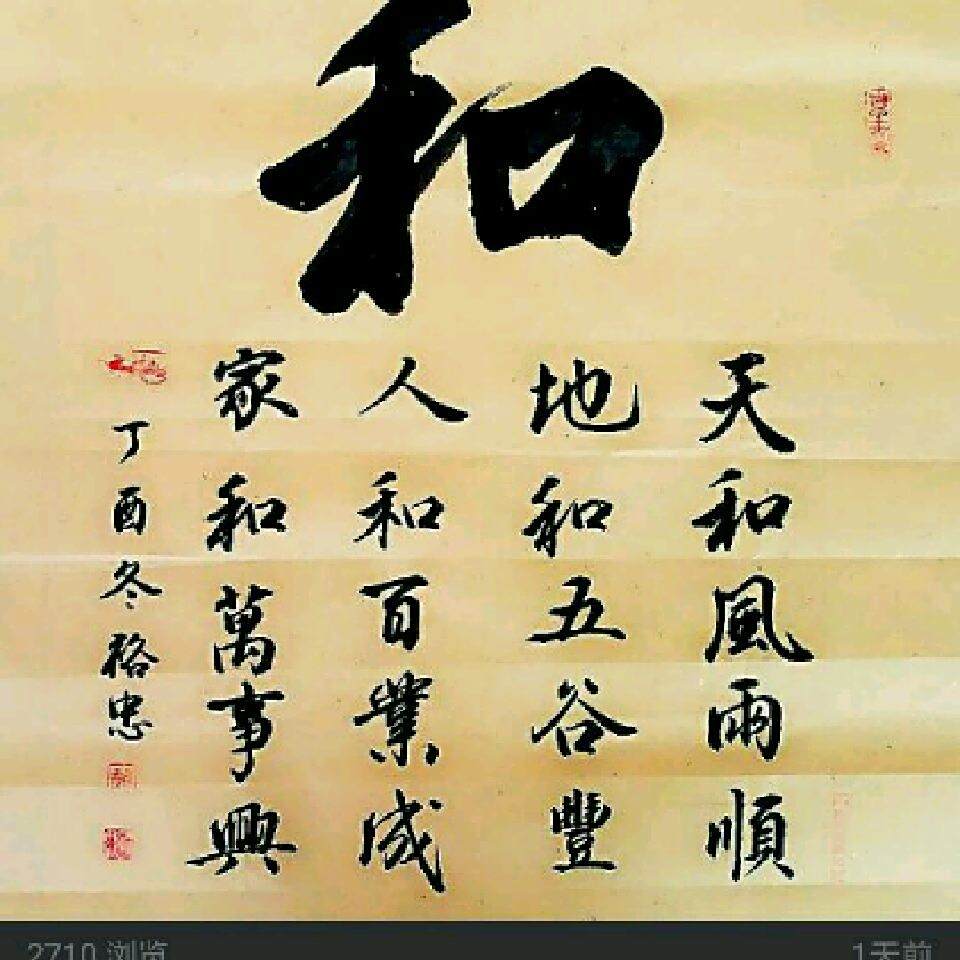 和
天和風雨順
地和五谷豐
人和百業成
家和萬事興
丁酉冬
忠
2710 浏览
1天前